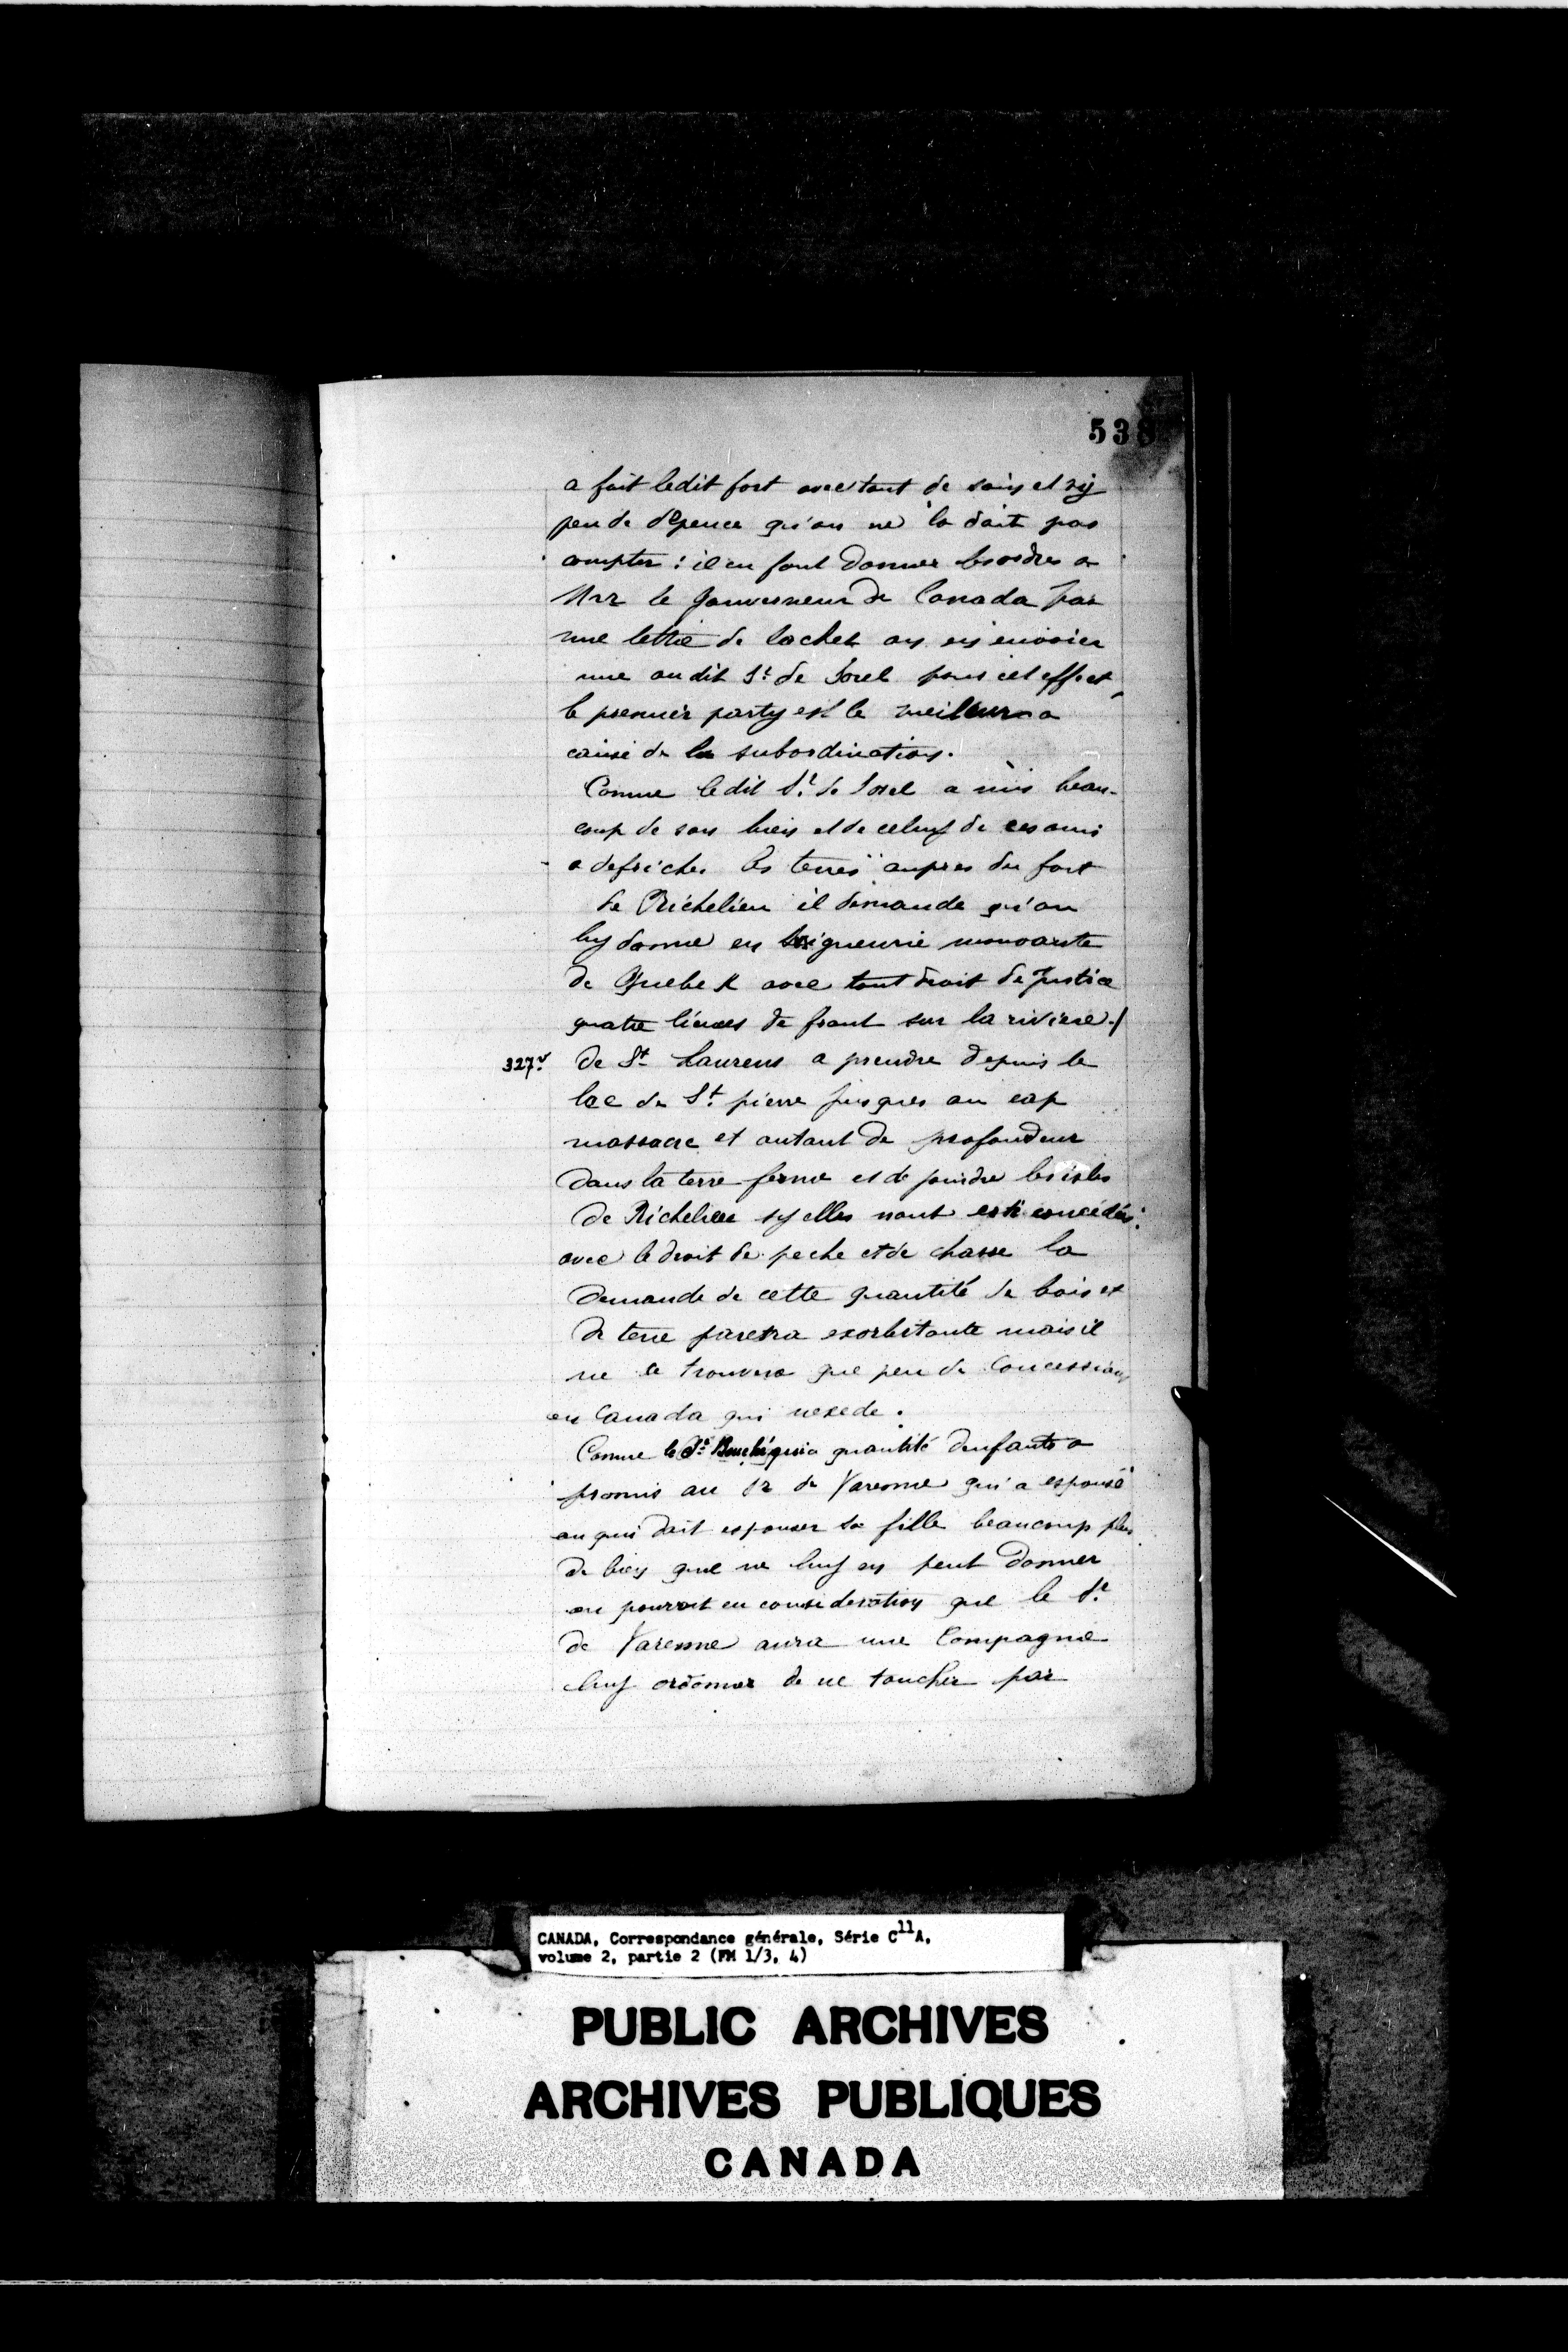 538
a fait ledit fort avec tant de soin et sy
peu de depence qu'on ne la doit pas
compter : il en faut donner les ordres a
Mrr le Gouverneur de Canada par
une lettre de cachet ou en envoier
une au dit Sr. de Sorel pour cet effect,
le premier party est le meilleur a
cause de la subordination.
Comme ledit Sr. de Sorel a mis beau-
coup de son bien et de celuy de ces amis
a defricher les terres aupres du fort
de Richelieu il demande qu'on
luy donne en Seigneurie mouvante
de Quebek avec tout droit de Justice
quatre lieues de front sur la riviere /
327v. de St. Laurens a prendre depuis le
lac de St. pierre jusques au cap
massacre et autant de profondeur
dans la terre ferme et de joindre les isles
de Richelieu sy elles nont esté concédés
avec le droit de peche et de chasse la
demande de cette quantité de bois et
de terre paretra exorbitante mais il
ne se trouvera que peu de Concessions
en Canada qui nexede.
Comme le Sr. Bouché qui a quantité denfants a
promis au Sr de Varenne qui a espousé
ou qui doit espouser sa fille beaucoup plus
de bien quil ne luy en peut donner
on pourroit en consideration que le Sr.
de Varenne aura une Compagnie
luy ordonner de ne toucher par
CANADA, Correspondance générale, Série C11A,
volume 2, partie 2 (FM 1/3, 4)
PUBLIC ARCHIVES
ARCHIVES PUBLIQUES
CANADA